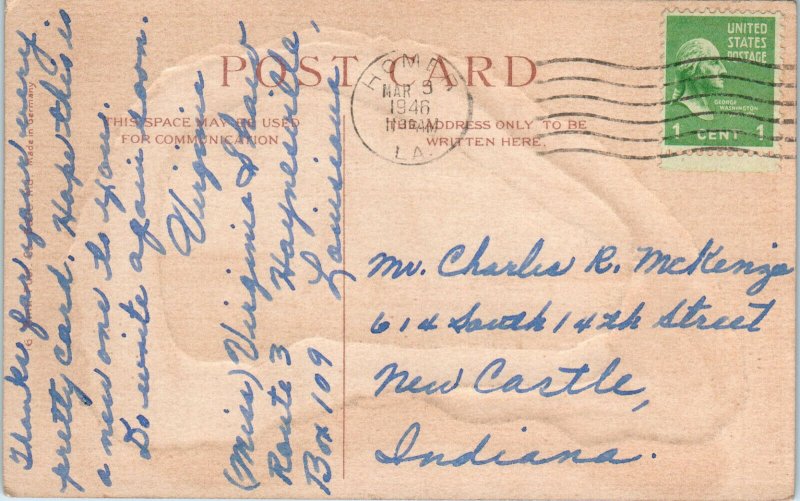 POST CARD
THIS SPACE MAY BE USED
FOR COMMUNICATION
THE ADDRESS ONLY TO BE
WRITTEN HERE.
HOMER
MAR 9
1946
AM
LA.
UNITED
STATES
POSTAGE
GEORGE
WASHINGTON
1 CENT 1
Thanks for your very
pretty card. Hope this is
a new one to you.
Do write again soon.
Virginia
(Miss) Virginia Shaw
Route 3 Haynesville,
Box 109 Louisiana
Mr. Charles R. McKenzie
614 South 14th Street
New Castle,
Indiana.
Made in Germany